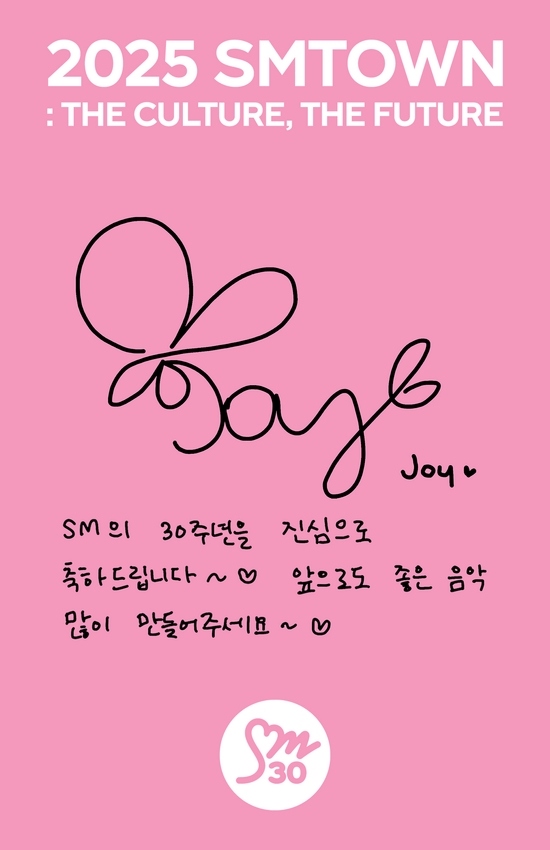 2025 SMTOWN
: THE CULTURE, THE FUTURE
Joy
Joy ♥
SM의 30주년을 진심으로
축하드립니다 ~ ♡ 앞으로도 좋은 음악
많이 만들어주세요 ~ ♡
Sm
30